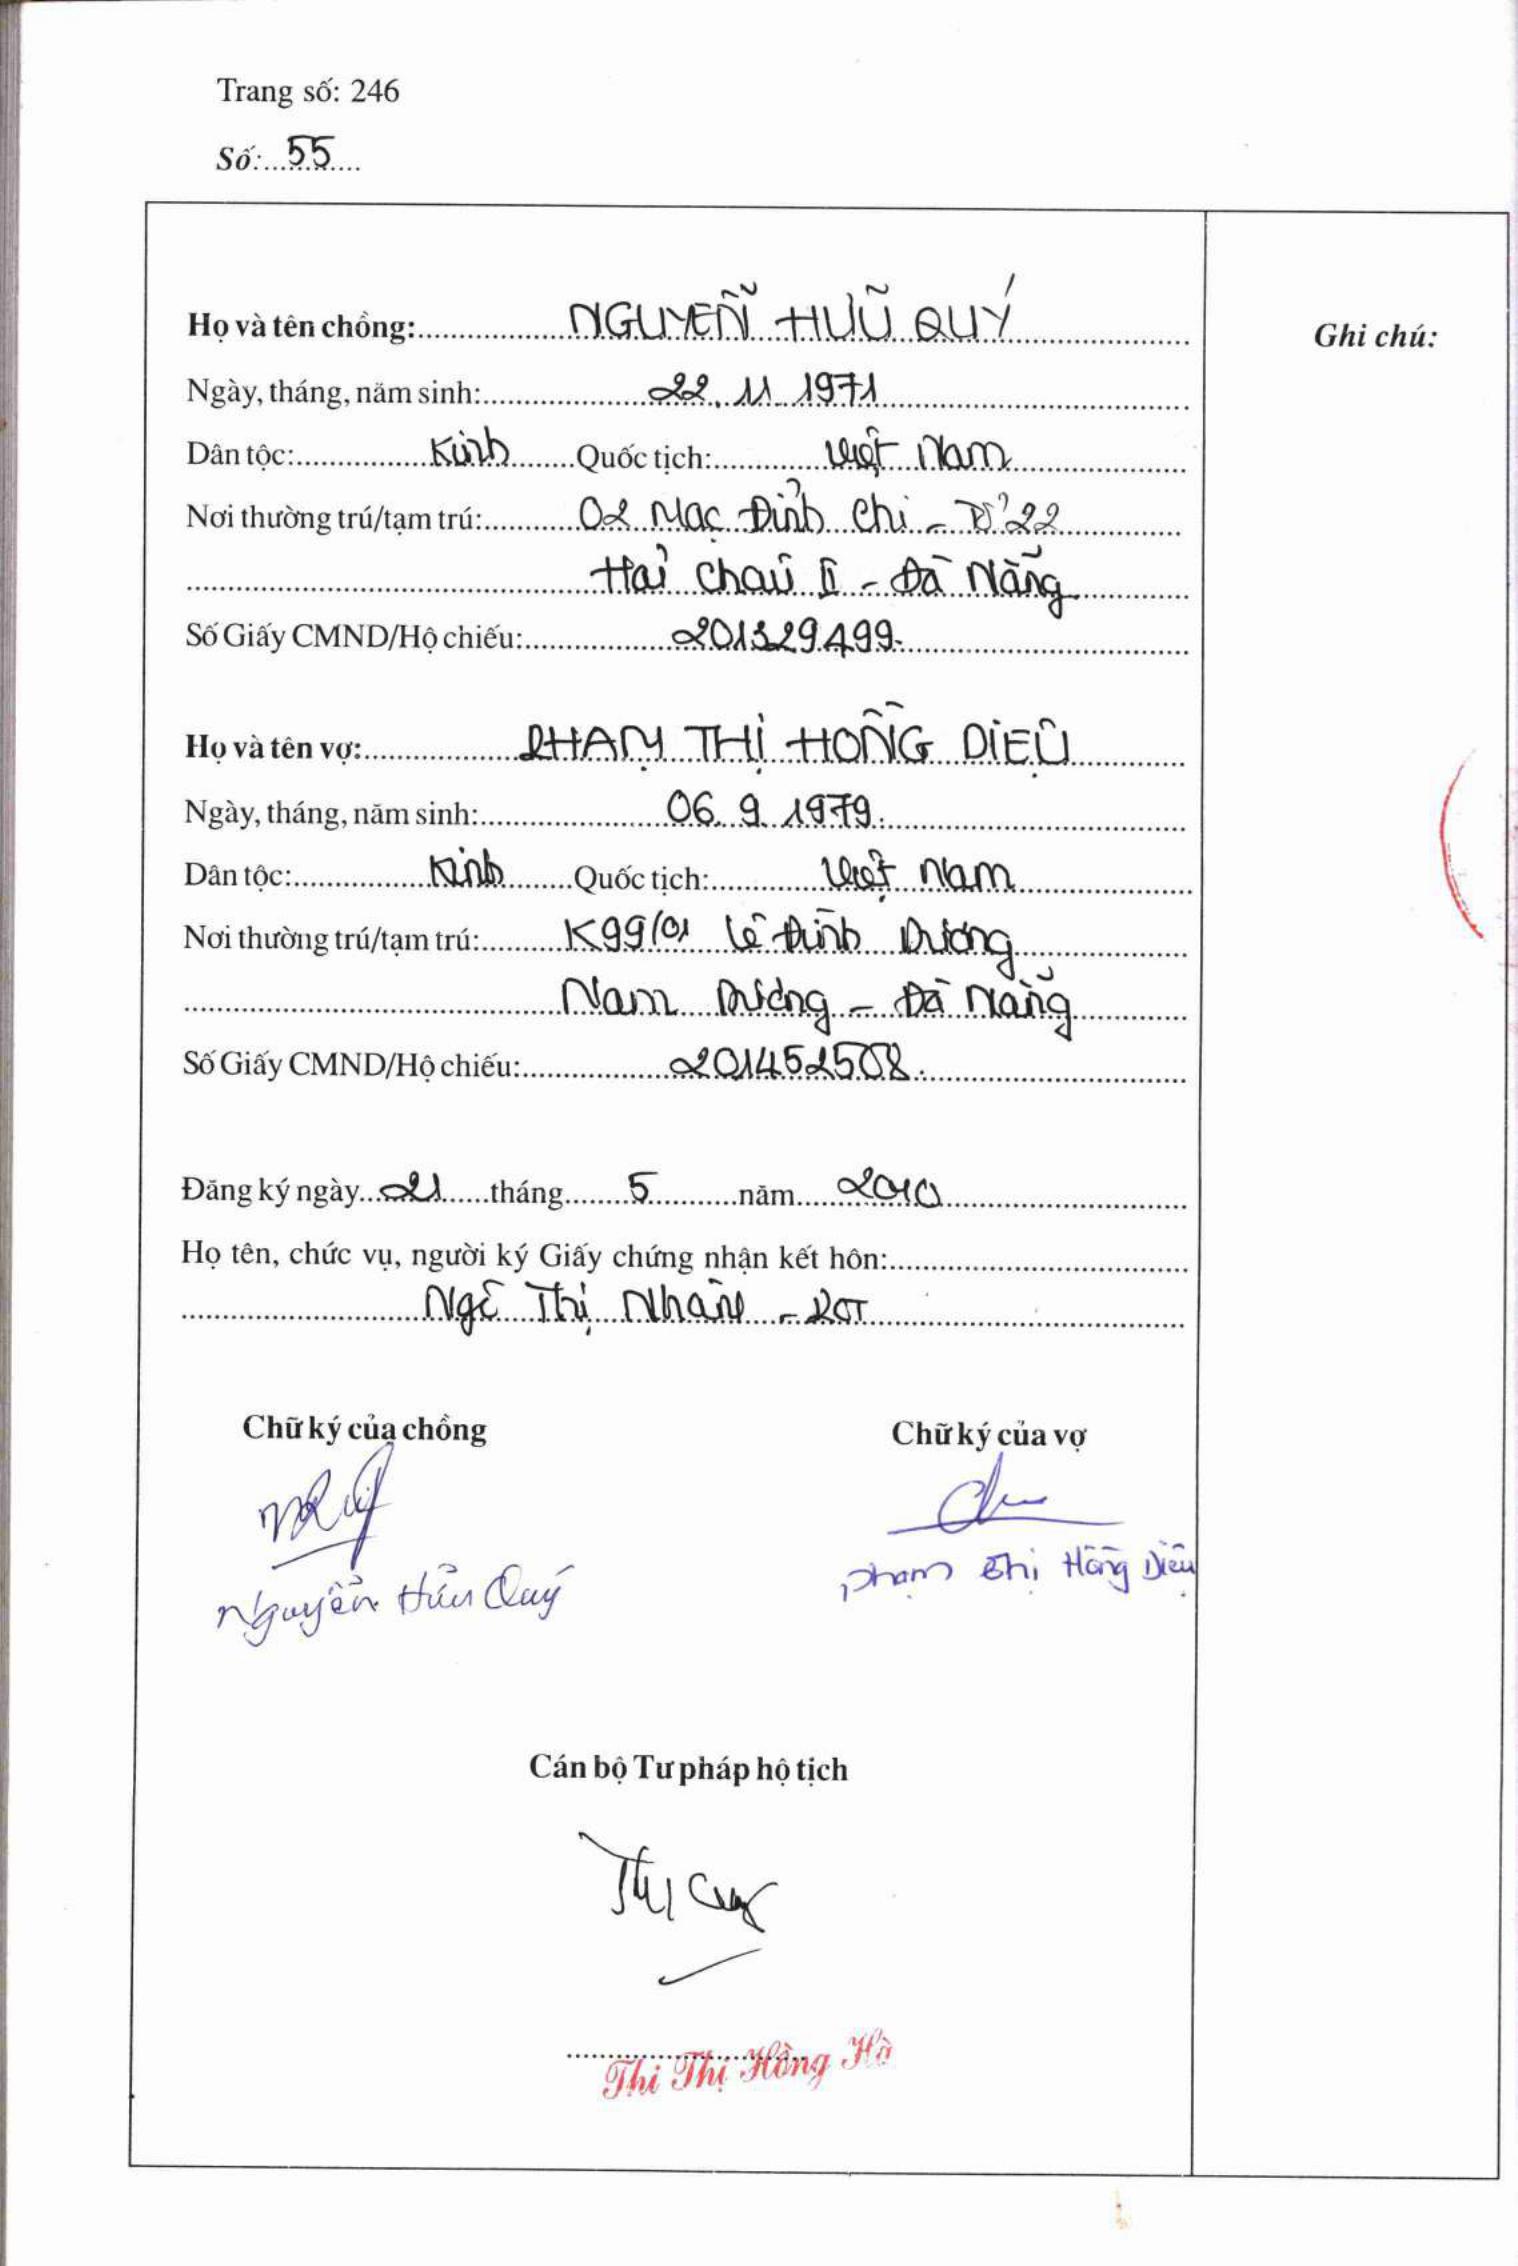 Trang số: 246
Số: 55
Họ và tên chồng: NGUYỄN HỮU QUÝ
Ghi chú:
Ngày, tháng, năm sinh: 22. 11. 1971
Dân tộc: Kinh Quốc tịch: Việt Nam
Nơi thường trú/tạm trú: 02 Mạc Đỉnh Chi - Tổ 22
Hải Châu II - Đà Nẵng
Số Giấy CMND/Hộ chiếu: 201329499.
Họ và tên vợ: PHẠM THỊ HỒNG DIỆU
Ngày, tháng, năm sinh: 06. 9. 1979.
Dân tộc: Kinh Quốc tịch: Việt Nam
Nơi thường trú/tạm trú: K99/01 Lê Đình Dương
Nam Dương - Đà Nẵng
Số Giấy CMND/Hộ chiếu: 201452508.
Đăng ký ngày 21 tháng 5 năm 2010
Họ tên, chức vụ, người ký Giấy chứng nhận kết hôn:
Ngô Thị Nhân -
Chữ ký của chồng Chữ ký của vợ
Nguyễn Hữu Quý Phạm Thị Hồng Diệu
Cán bộ Tư pháp hộ tịch
Thi Thị Hồng Hà